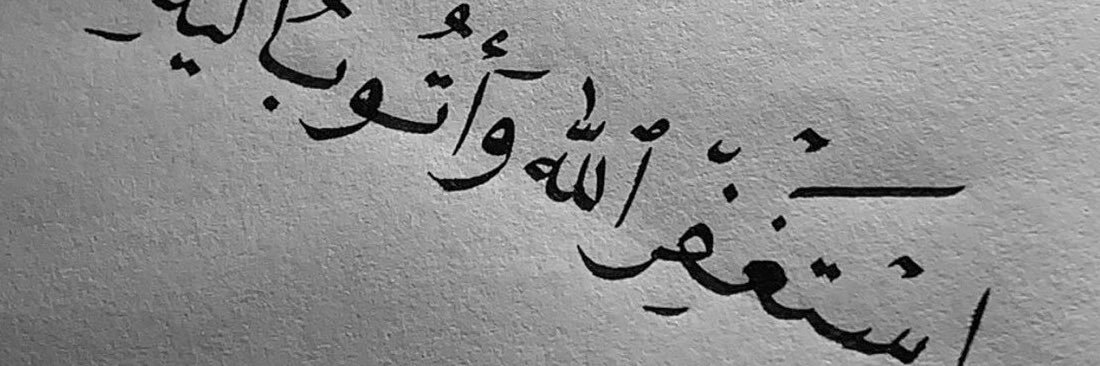 استغفر ٱللّٰه وأتوب إليه